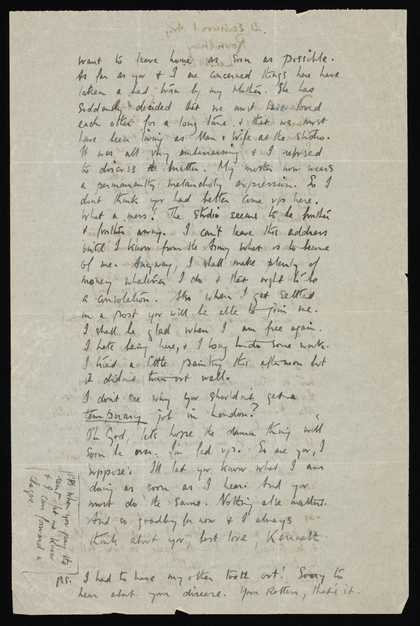 want to leave home as soon as possible.
As far as you & I are concerned things here have
taken a bad turn by my Mother. She has
suddenly decided that we must have loved
each other for a long time & that we must
have been living as Man & Wife at the studio.
It was all very embarrassing & I refused
to discuss the matter. My mother now wears
a permanently melancholy expression. So I
dont think you had better come up here.
What a mess! The studio seems to be further
& further away. I can't leave this address
until I know from the Army what is to become
of me. Anyway, I shall make plenty of
money whatever I do & that ought to be
a consolation. Also when I get settled
in a post you will be able to join me.
I shall be glad when I am free again.
I hate being here, & I long to do some work.
I tried a little painting this afternoon but
it didn't turn out well.
I don't see why you shouldn't get a
temporary job in London?
Oh God, let's hope the damn thing will
soon be over. I'm fed up. So are you, I
suppose. I'll let you know what I am
doing as soon as I hear. And you
must do the same. Nothing else matters.
And so goodbye for now & I always
think about you, best love, Kenneth
PS. I had to have my other tooth out! Sorry to
hear about your disease. Your Rotten, that's it.
PS When you pay the
rent let me know
& I can forward a
cheque.